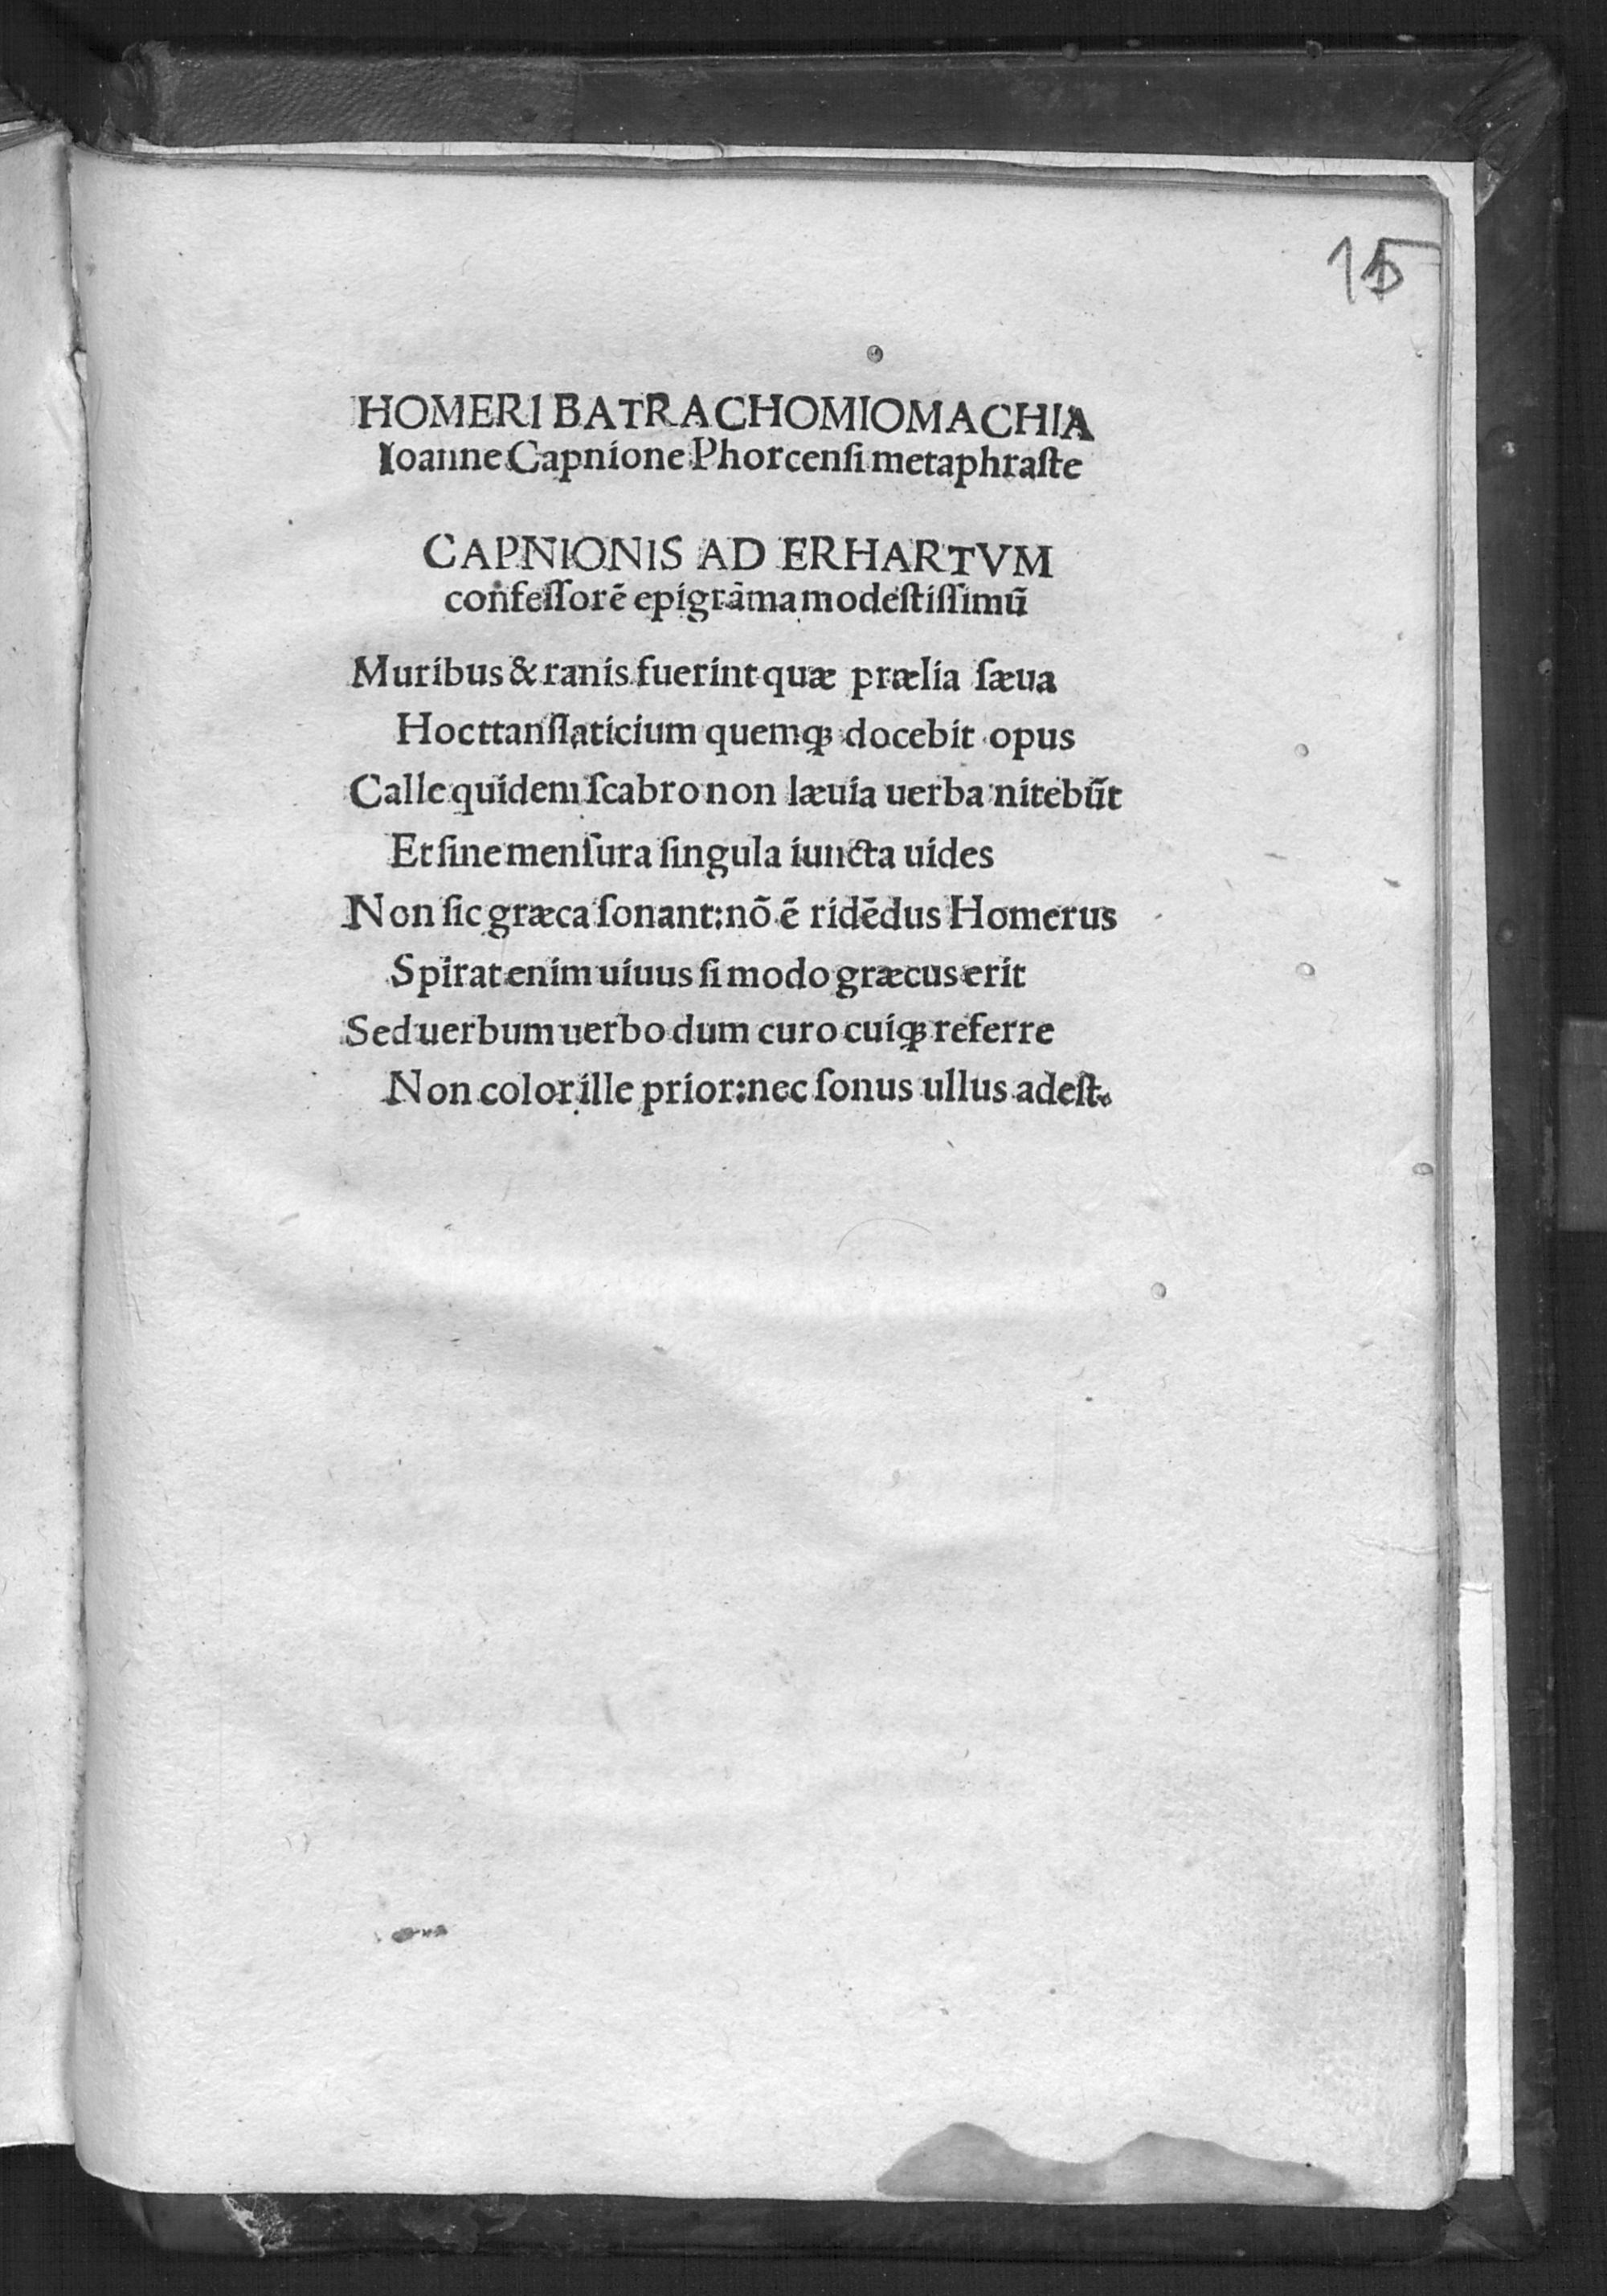 15
HOMERI BATRACHOMIOMACHIA
Ioanne Capnione Phorcensi metaphraſte
CAPNIONIS AD ERHARTVM
confeſſorē epigrāma modeſtiſſimū
Muribus & ranis fuerint quæ prælia ſæua
Hoc ttanſlaticium quemqꝫ docebit opus
Calle quidem ſcabro non læuia uerba nitebūt
Et ſine menſura ſingula iuncta uides
Non ſic græca ſonant: nō ē ridēdus Homerus
Spirat enim uiuus ſi modo græcus erit
Sed uerbum uerbo dum curo cuiqꝫ referre
Non color ille prior: nec ſonus ullus adeſt.